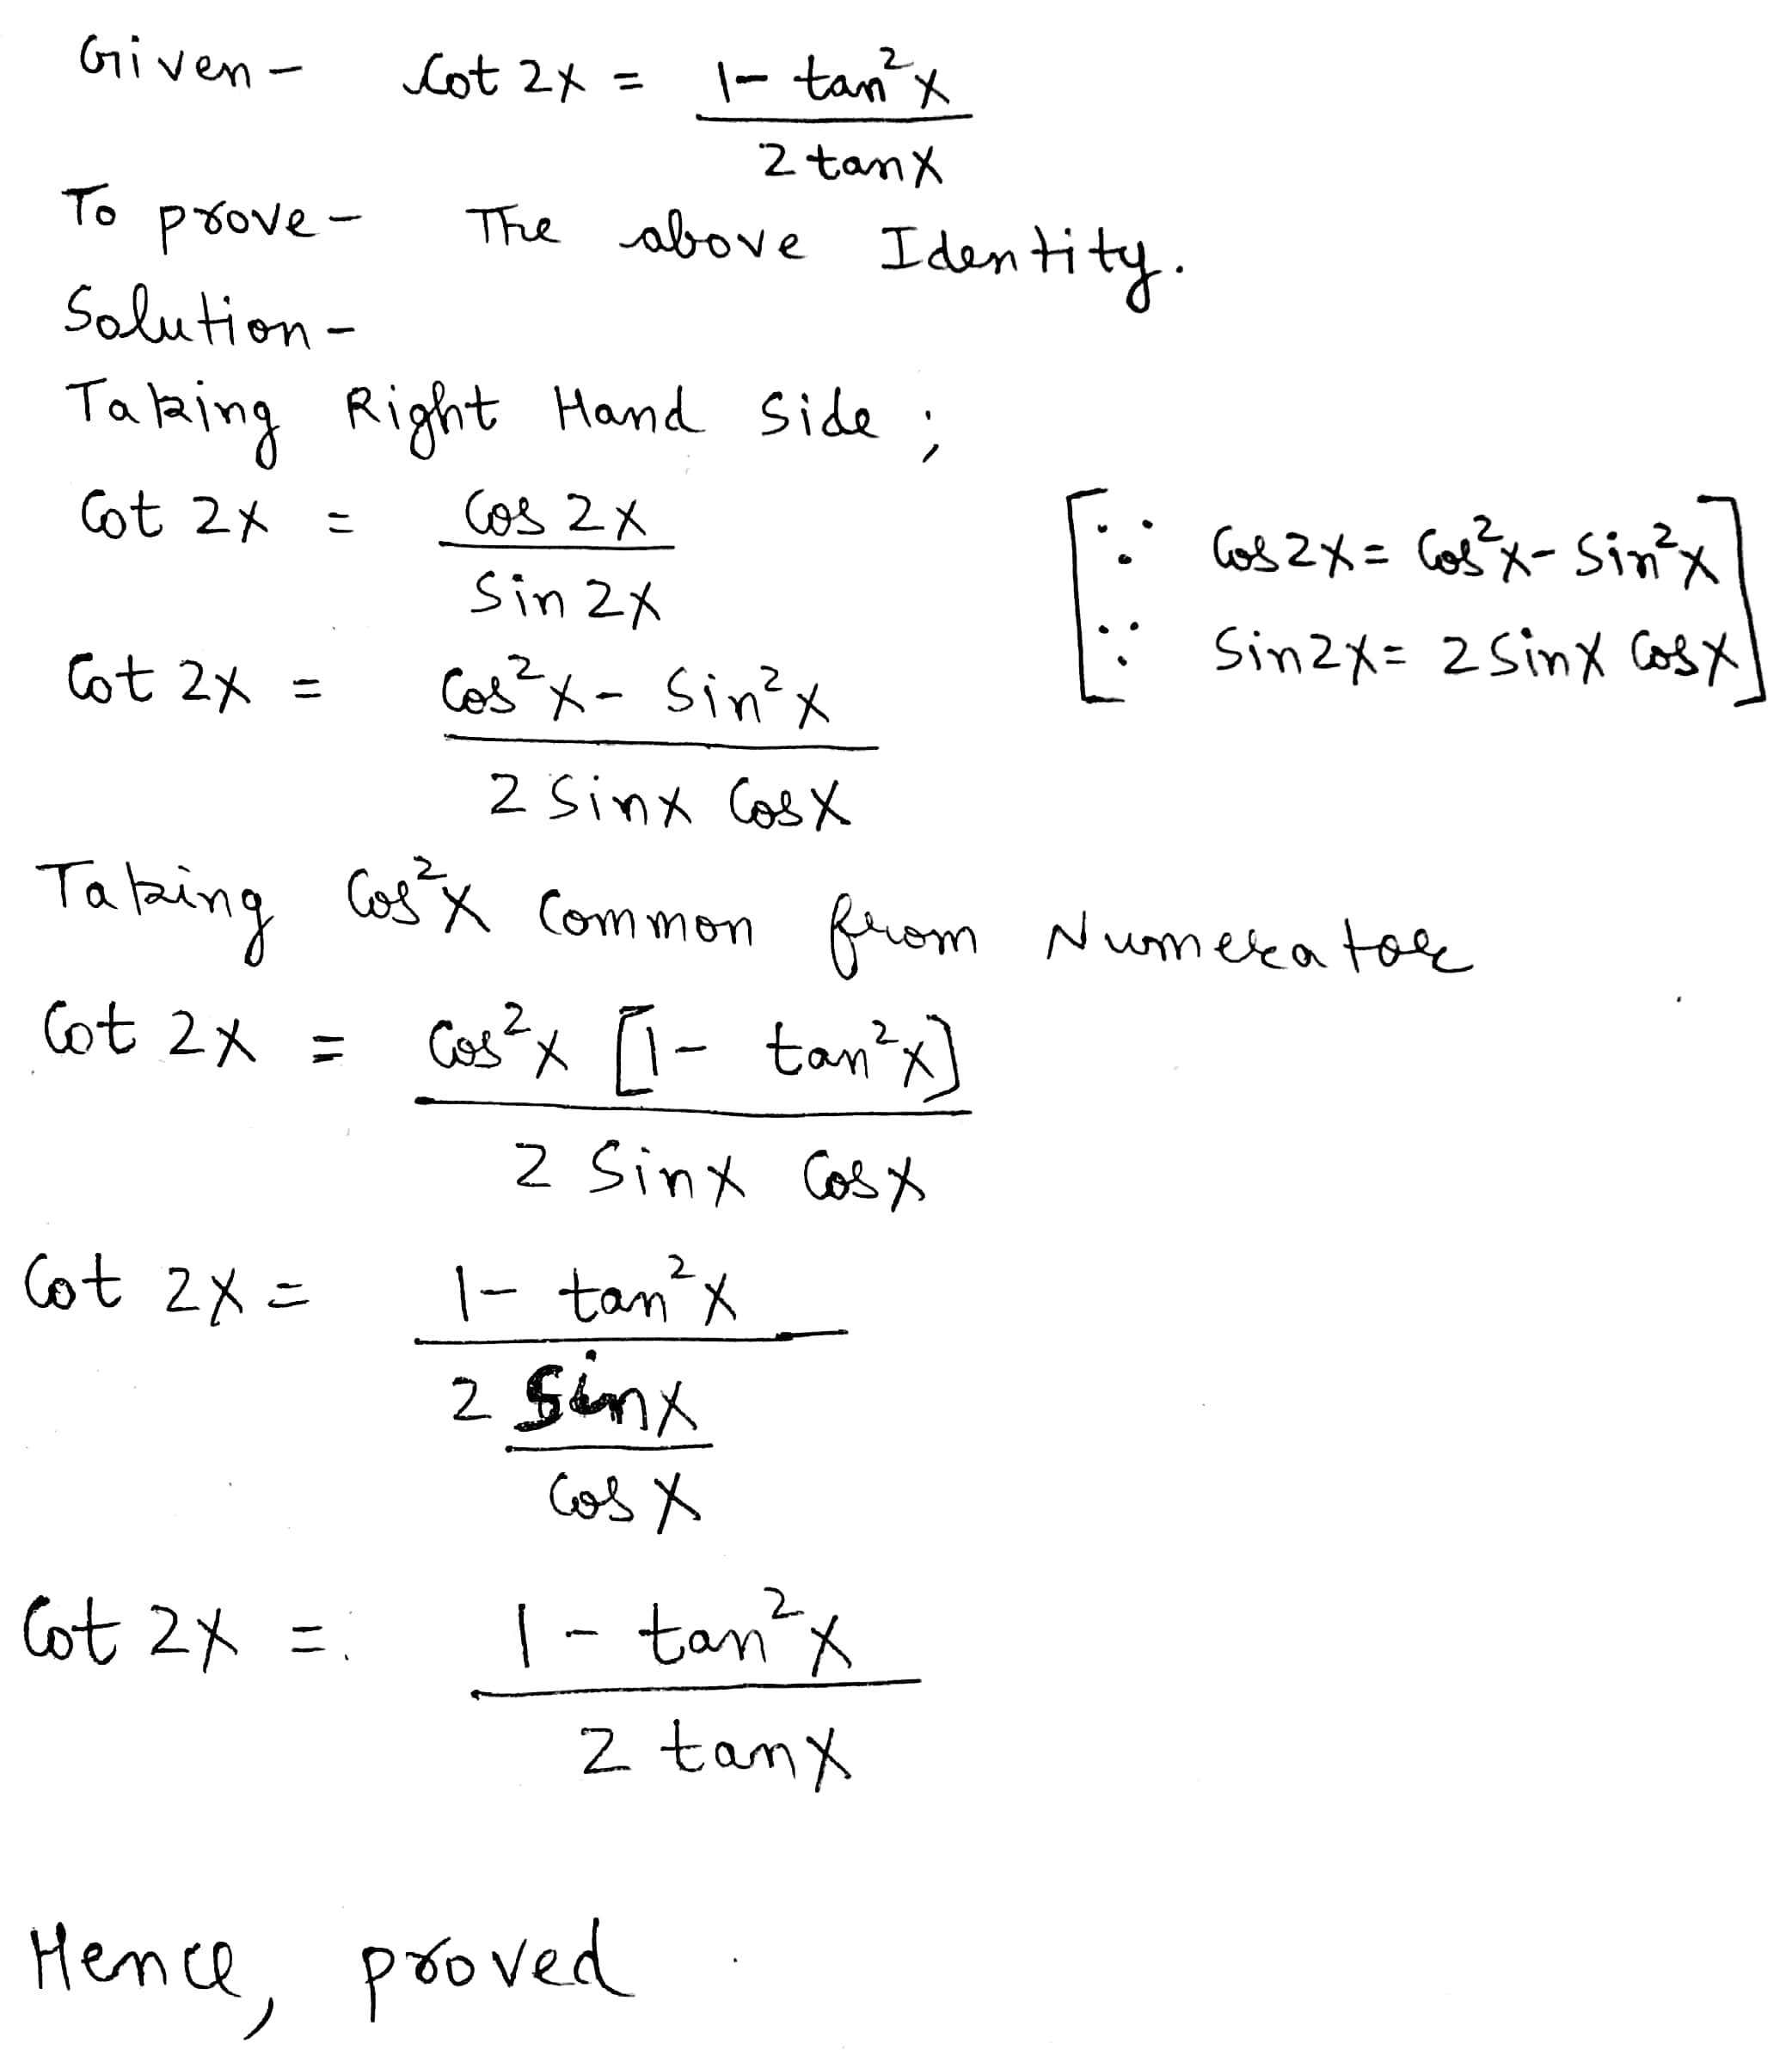 Given - Cot 2x = 1 - tan²x
2 tanx
To prove - The above Identity.
Solution -
Taking Right Hand Side ;
Cot 2x = Cos 2x
Sin 2x
[∵ Cos2x = Cos²x - Sin²x
∵ Sin2x = 2 Sinx Cosx]
Cot 2x = Cos²x - Sin²x
2 Sinx Cosx
Taking Cos²x Common from Numerator
Cot 2x = Cos²x [1 - tan²x]
2 Sinx Cosx
Cot 2x = 1 - tan²x
2 Sinx
Cosx
Cot 2x = 1 - tan²x
2 tanx
Hence, proved